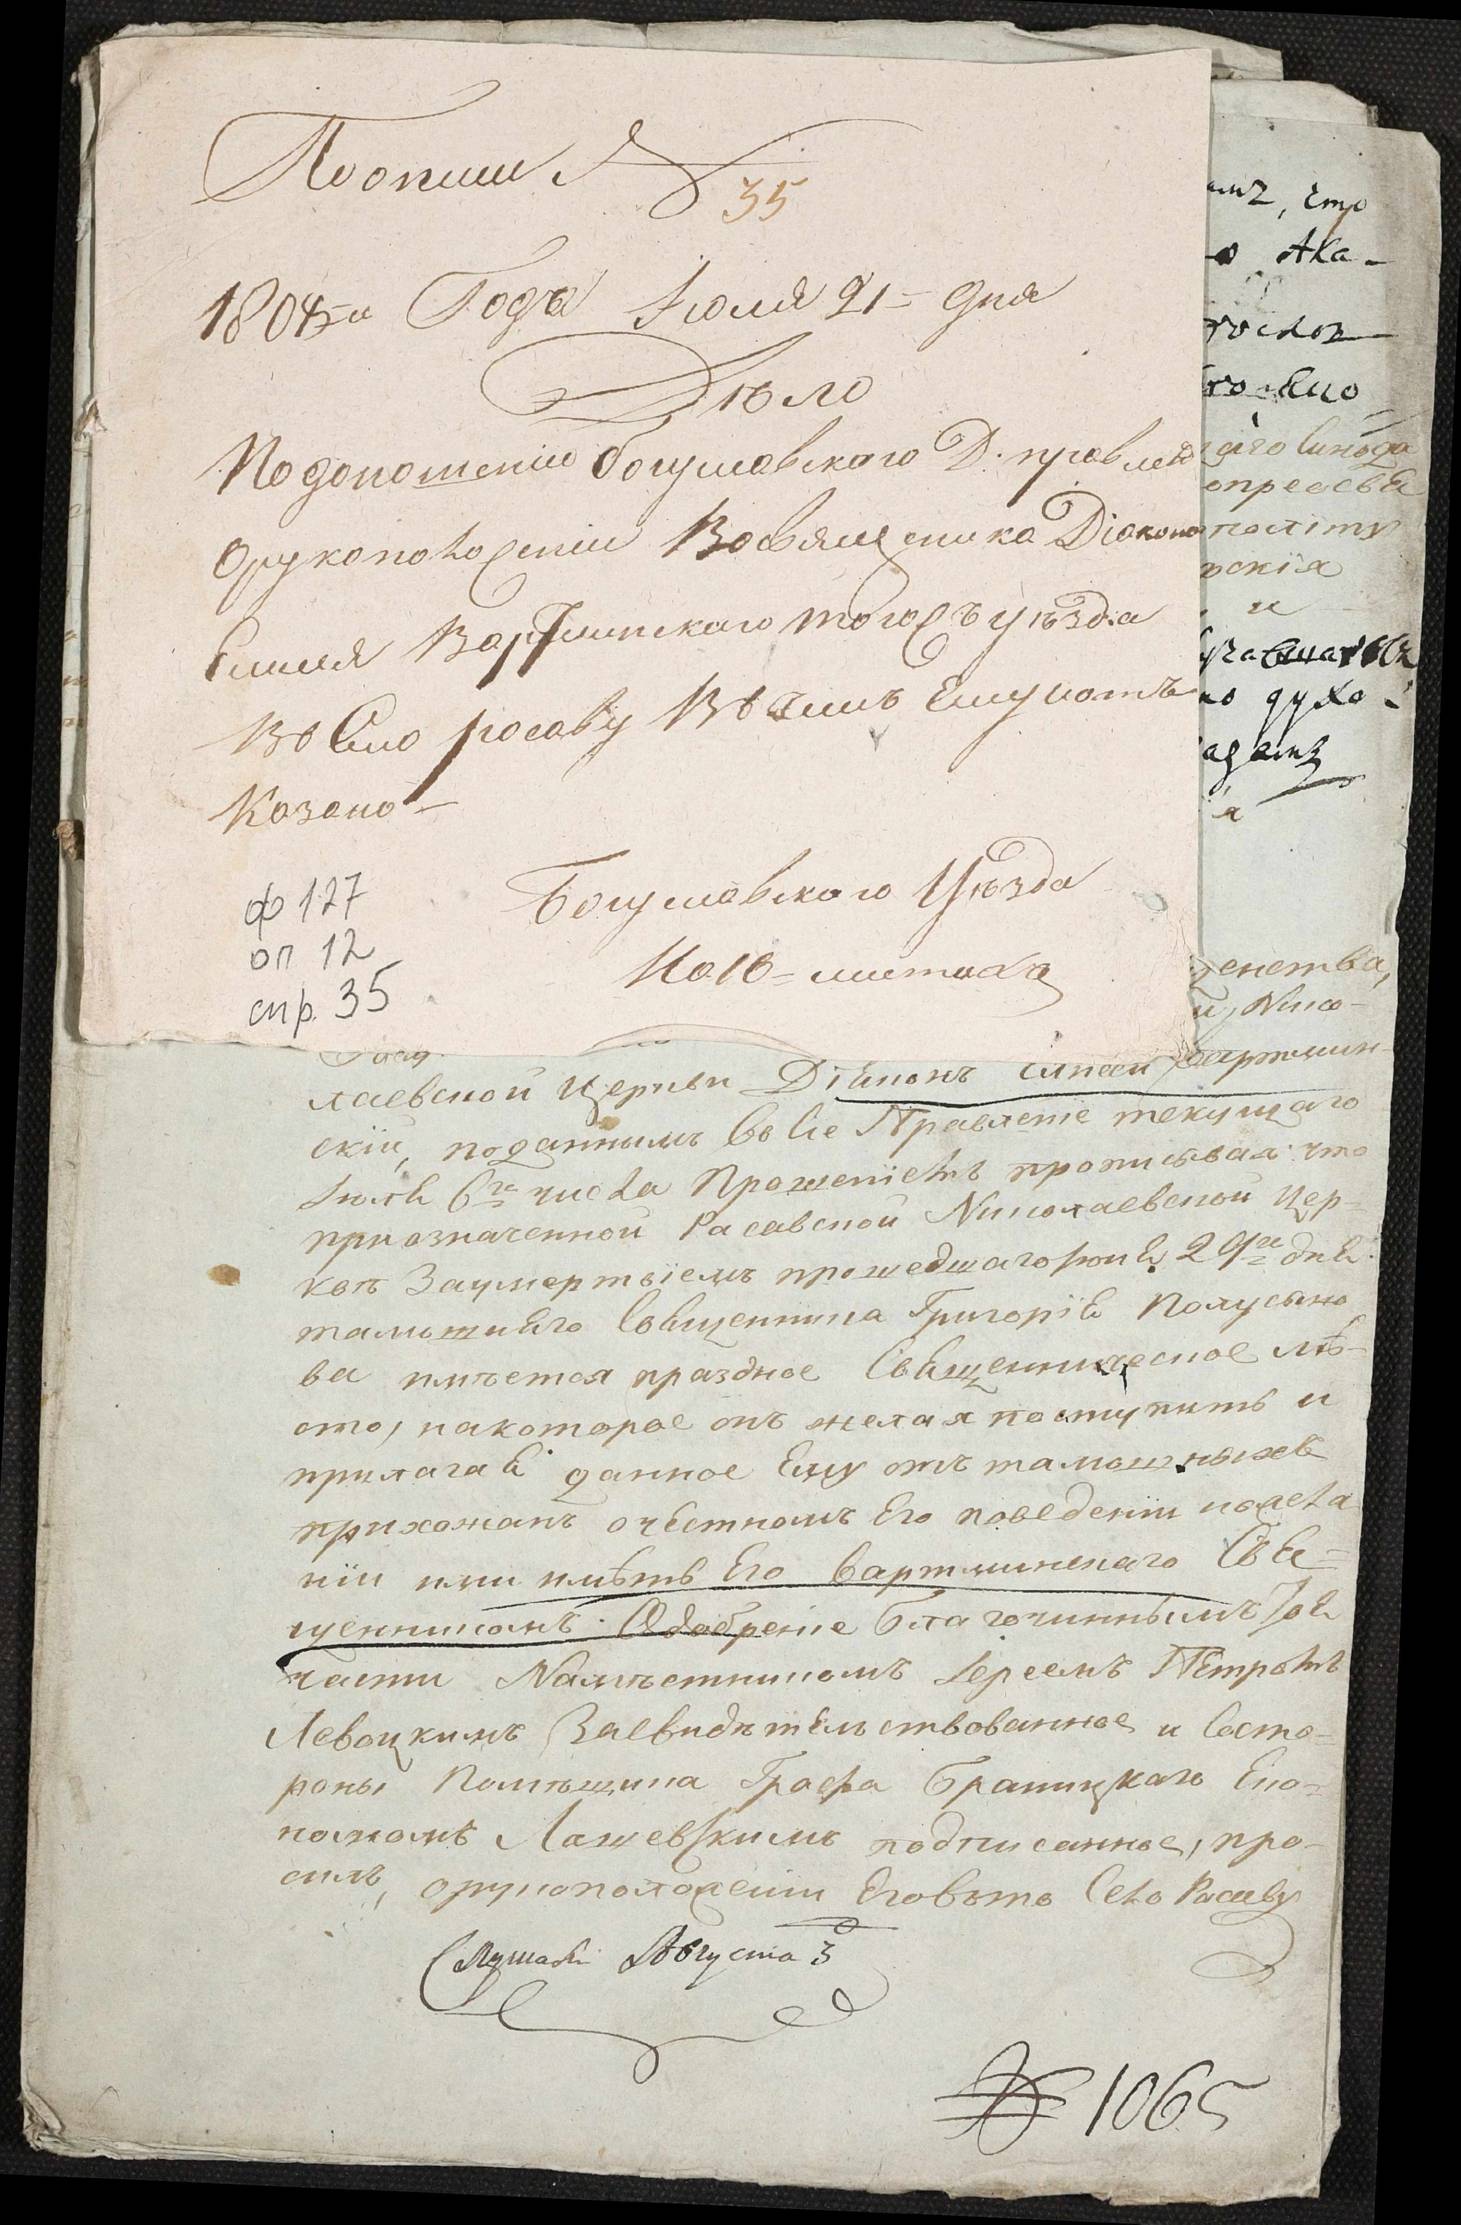 По описи №
35
1804го Года Июля 21 = дня
Дѣло
По доношению богуславского Д: правлен
О рукоположении Во священика Диакона
Симия Вартминскаго того жъ уѣзда
Во Село росаву В чемъ Ему и отъ
Казано —
Богуславского Уѣзда
На 10 = листахъ
ф 127
оп 12
спр. 35
амъ, что
Ака-
гаго Синода
скія
и
по духо-
я
и Нико-
лаевской Церкви Діаконъ Симеонъ Вартмин-
скій, поданнымъ въ сіе Правленіе текущаго
Іюля 6го числа Прошеніемъ прописывая: что
при означенной Расавской Николаевской Цер-
кви За умертвіемъ прошедшаго іюня 29го дня
тамошняго Священника Григорія Полусано
ва имѣется праздное Священническое мѣ-
сто, на которое онъ желая поступить и
прилагая данное Ему отъ тамошныхъ
прихожанъ о честномъ Его поведеніи и желa
ніи ими имѣть Его Вартминскаго Свя-
щенникомъ Одобреніе Благочиннымъ той
части Намѣстникомъ Іереемъ Петромъ
Левоцкимъ Засвидѣтельствованное и Състо-
роны Помѣщика Графа Браницкаго Еко-
номомъ Лашевскимъ подписанное, про-
силъ, о рукоположеніи Его въ то Село Расаву
Слушано Августа 3
№ 1065